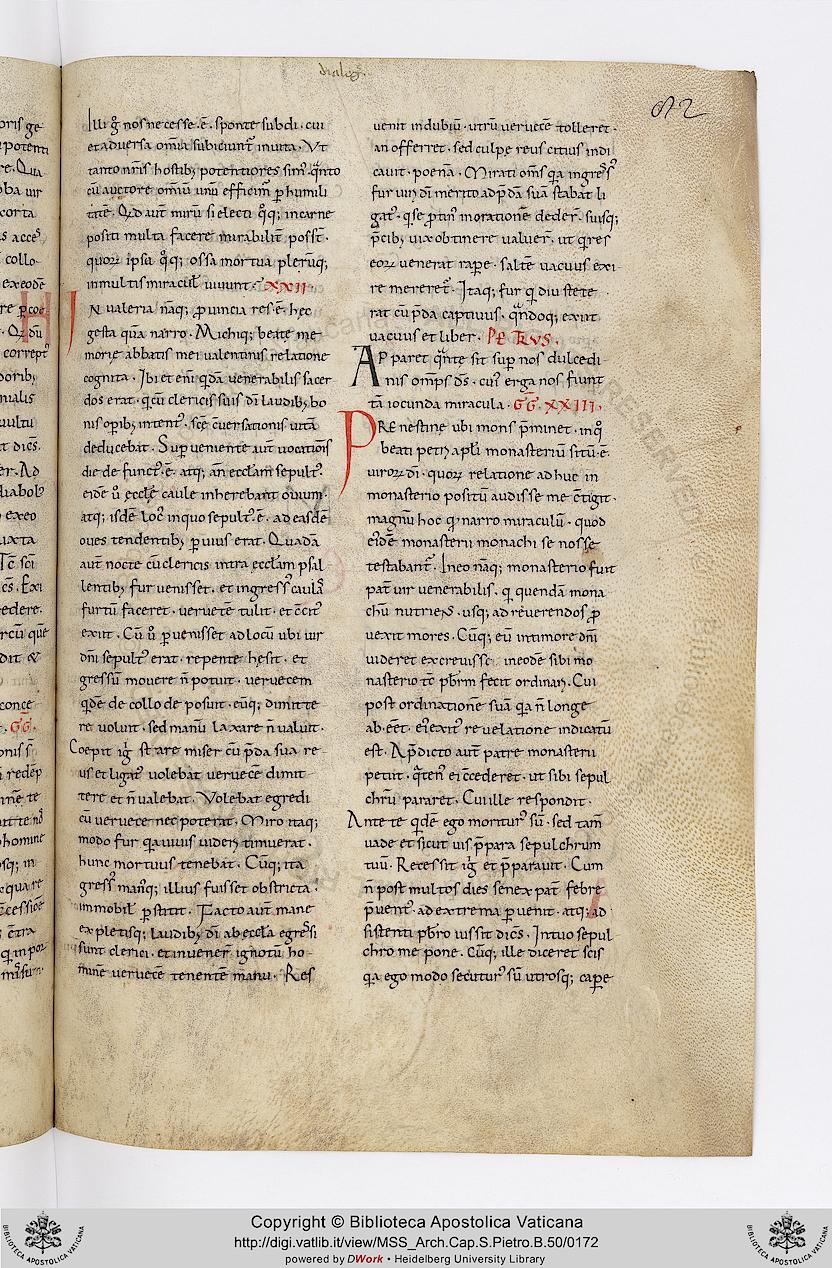 dialog.
82
Illi g̊ nos necesse .ē. sponte subdi . cui
et adversa om̄ia subiciunt᷑ invita . Vt
tanto nr̄is hostib; potentiores sim᷒ . q̄nto
cū auctore omiū unū efficim᷒ p̄ humili
tatē . Qd̄ aut̄ mirū si electi q̊q; in carne
positi multa facere mirabilit᷑ poss̄t .
quoꝝ ipsa q̊q; ossa mortua plerūq;
in multis miracul᷒ vivunt . XXII .
IN valeria nāq; p̱vincia res .ē. hec
gesta quā narro . Michiq; beate me
morie abbatis mei valentini᷒ relatione
cognita . Ibi et eni q̄dā venerabilis sacer
dos erat . q cū clericis suis dī laudib; bo
nis opib; intent᷒ . scē cversationis vitā
deducebat . Superveniente aut̄ vocationis
die defunct᷒ .ē. atq; an̄ ecclām sepult᷒ .
eidē v̊ ecclę caule inherebant ovium .
atq; isdē loc᷒ in quo sepult᷒ .ē. ad easdē
oves tendentib; pervius erat . Quadā
aut̄ nocte cū clericis intra ecclām psal
lentib; fur venisset . et ingress᷒ caulā
furtū faceret . vervecē tulit . et ccit᷒
exiit . Cū v̊ pervenisset ad locū ubi vir
dn̄i sepult᷒ erat . repente hesit . et
gressū movere n̄ potuit . vervecem
q̄dē de collo deposuit . eūq; dimitte
re voluit . sed manū laxare n̄ valuit .
Coepit ig̊ stare miser cū p̄da sua re
us et ligat᷒ volebat vervecē dimit
tere et n̄ valebat . Volebat egredi
cū vervece nec poterat . Miro itaq;
modo fur q̄ a vivis videri timuerat .
hunc mortuus tenebat . Cūq; ita
gress᷒ man᷒q; illius fuisset obstricta .
immobil᷒ p̱stitit . Facto aut̄ mane
expletisq; laudib; dī ab ecclā egressi
sunt clerici . et invener̄ ignotū ho
minē vervecē tenentē manu . Res
venit in dubiū . utrū vervecē tolleret .
an offerret . sed culpe reus citius indi
cavit . poenā . Mirati oms̄ q̄a ingress᷒
fur viri dī merito ad p̄dā suā stabat li
gat᷒ . q se p̱tin᷒ in orationē deder̄ . suisq;
p̄cib; vix obtinere valuer̄ . ut q res
eoꝝ venerat rape . saltē vacuus exi
re mereret᷑ . Itaq; fur q diu stete
rat cū p̄da captivus . q̄ndoq; exiit
vacuus et liber . PETRVS .
Apparet q̄nte sit sup nos dulcedi
nis omps̄ ds̄ . cui᷒ erga nos fiunt
tā iocunda miracula . GG̅ XXIII .
PREnestine ubi mons p̄minet . in q̊
beati petri apl̄i monasteriū sitū .ē.
viroꝝ dī . quoꝝ relatione adhuc in
monasterio positū audisse me ctigit .
magnū hoc q᷒ narro miraculū . quod
ei᷒dē monasterii monachi se nosse
testabant᷑ . In eo nāq; monasterio fuit
pat᷑ vir venerabilis . q quendā mona
chū nutriens . usq; ad reverendos p̱
vexit mores . Cūq; eū in timore dn̄i
videret excrevisse . in eodē sibi mo
nasterio tc̄ pbr̄m fecit ordinari . Cui
post ordinationē suā q̄a n̄ longe
abeēt . ei᷒ exit᷒ revelatione indicatū
est . A p̄dicto aut̄ patre monasterii
petiit . q̄ten᷒ ei ccederet . ut sibi sepul
chrū pararet . Cui ille respondit .
Ante te q̄dē ego moritur᷒ sū . sed tam̄
vade et sicut vis p̄para sepulchrum
tuū . Recessit ig̊ et p̄paravit . Cum
n̄ post multos dies senex pat᷑ febre
p̄vent᷒ . ad extrema pervenit . atq; ad
sistenti pbr̄o iussit dicēs . In tuo sepul
chro me pone . Cūq; ille diceret scis
q̄a ego modo secutur᷒ sū utrosq; cape
Copyright © Biblioteca Apostolica Vaticana
http://digi.vatlib.it/view/MSS_Arch.Cap.S.Pietro.B.50/0172
powered by DWork • Heidelberg University Library